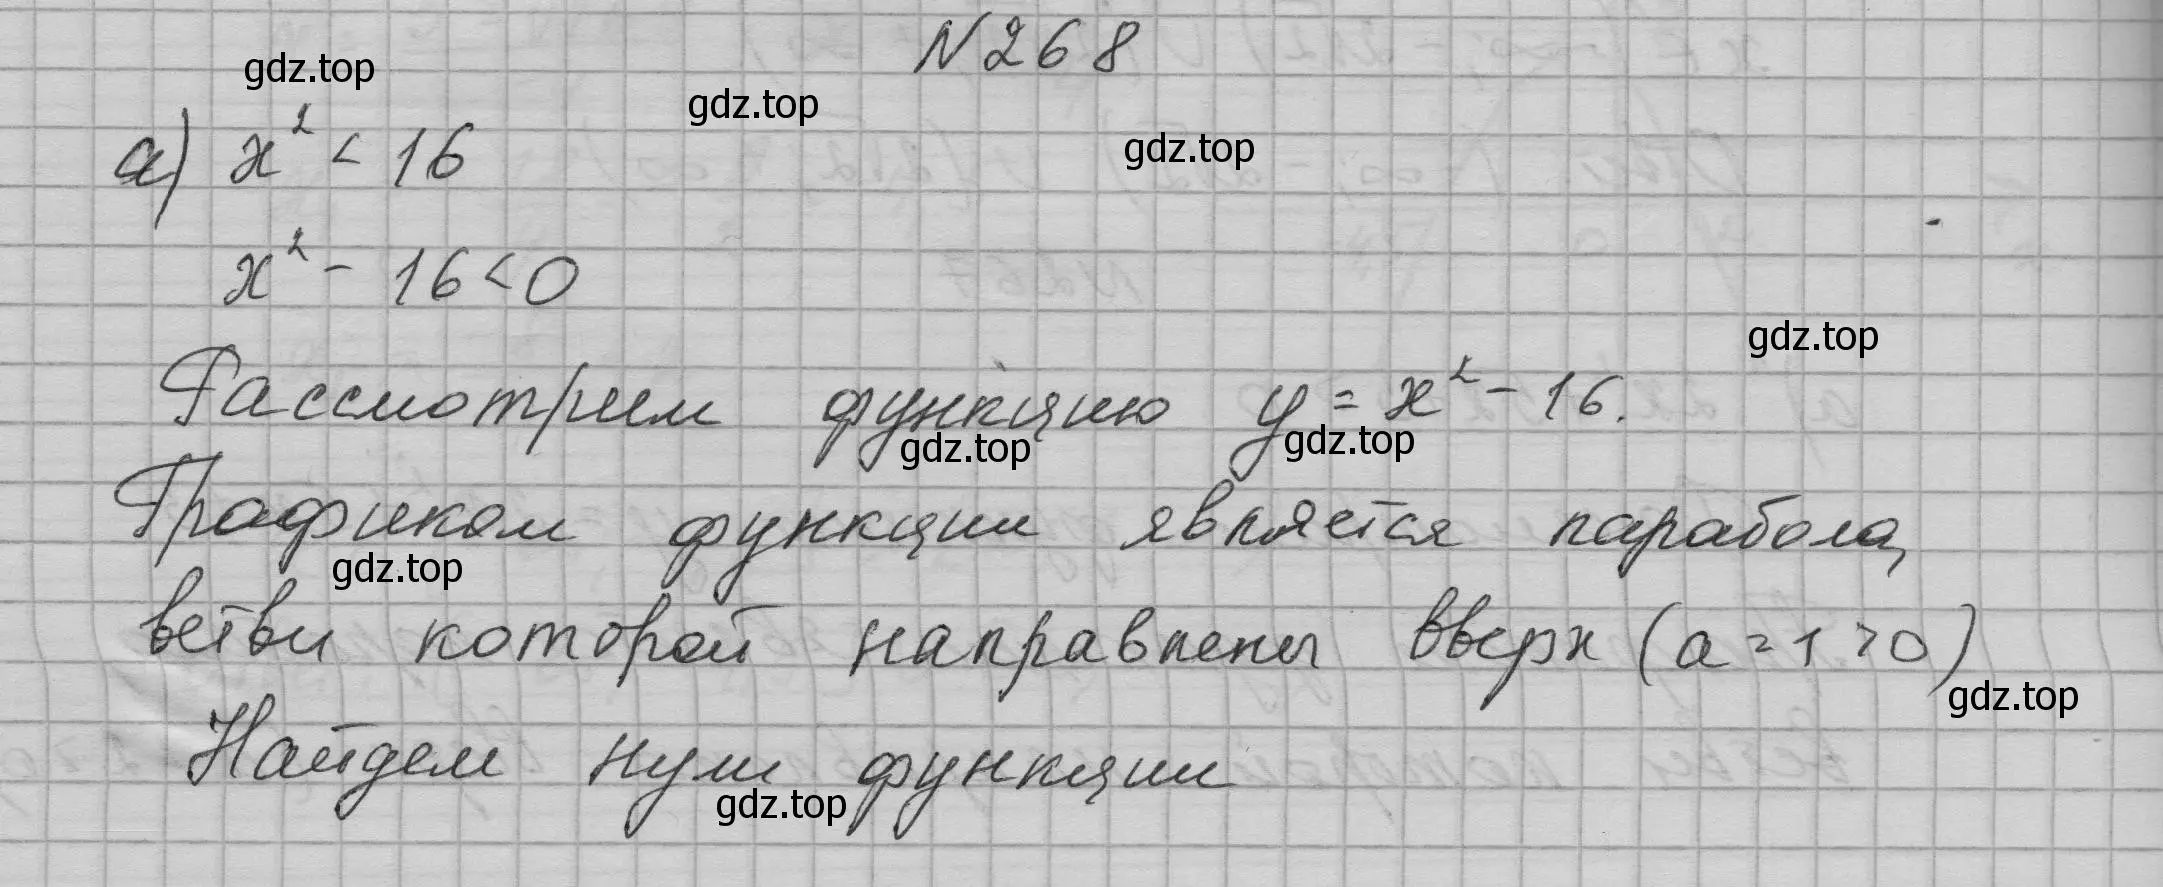 N268
gdz.top
gdz.top
gdz.top
а) x² < 16
x² - 16 < 0
gdz.top
Рассмотрим функцию y = x² - 16.
gdz.top
gdz.top
Графиком функции является парабола,
gdz.top
ветви которой направлены вверх (a = 1 > 0)
gdz.top
Найдем нули функции
gdz.top